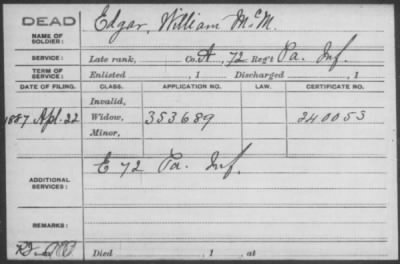 DEAD
NAME OF SOLDIER:
Edgar, William McM.
SERVICE:
Late rank, Co. A, 72 Reg't Pa. Inf.
TERM OF SERVICE:
Enlisted , 1 Discharged , 1
DATE OF FILING. CLASS. APPLICATION NO. LAW. CERTIFICATE NO.
Invalid,
1887 Apl. 22 Widow, 353689 240053
Minor,
ADDITIONAL SERVICES:
E 72 Pa. Inf.
REMARKS:
Died , 1 , at